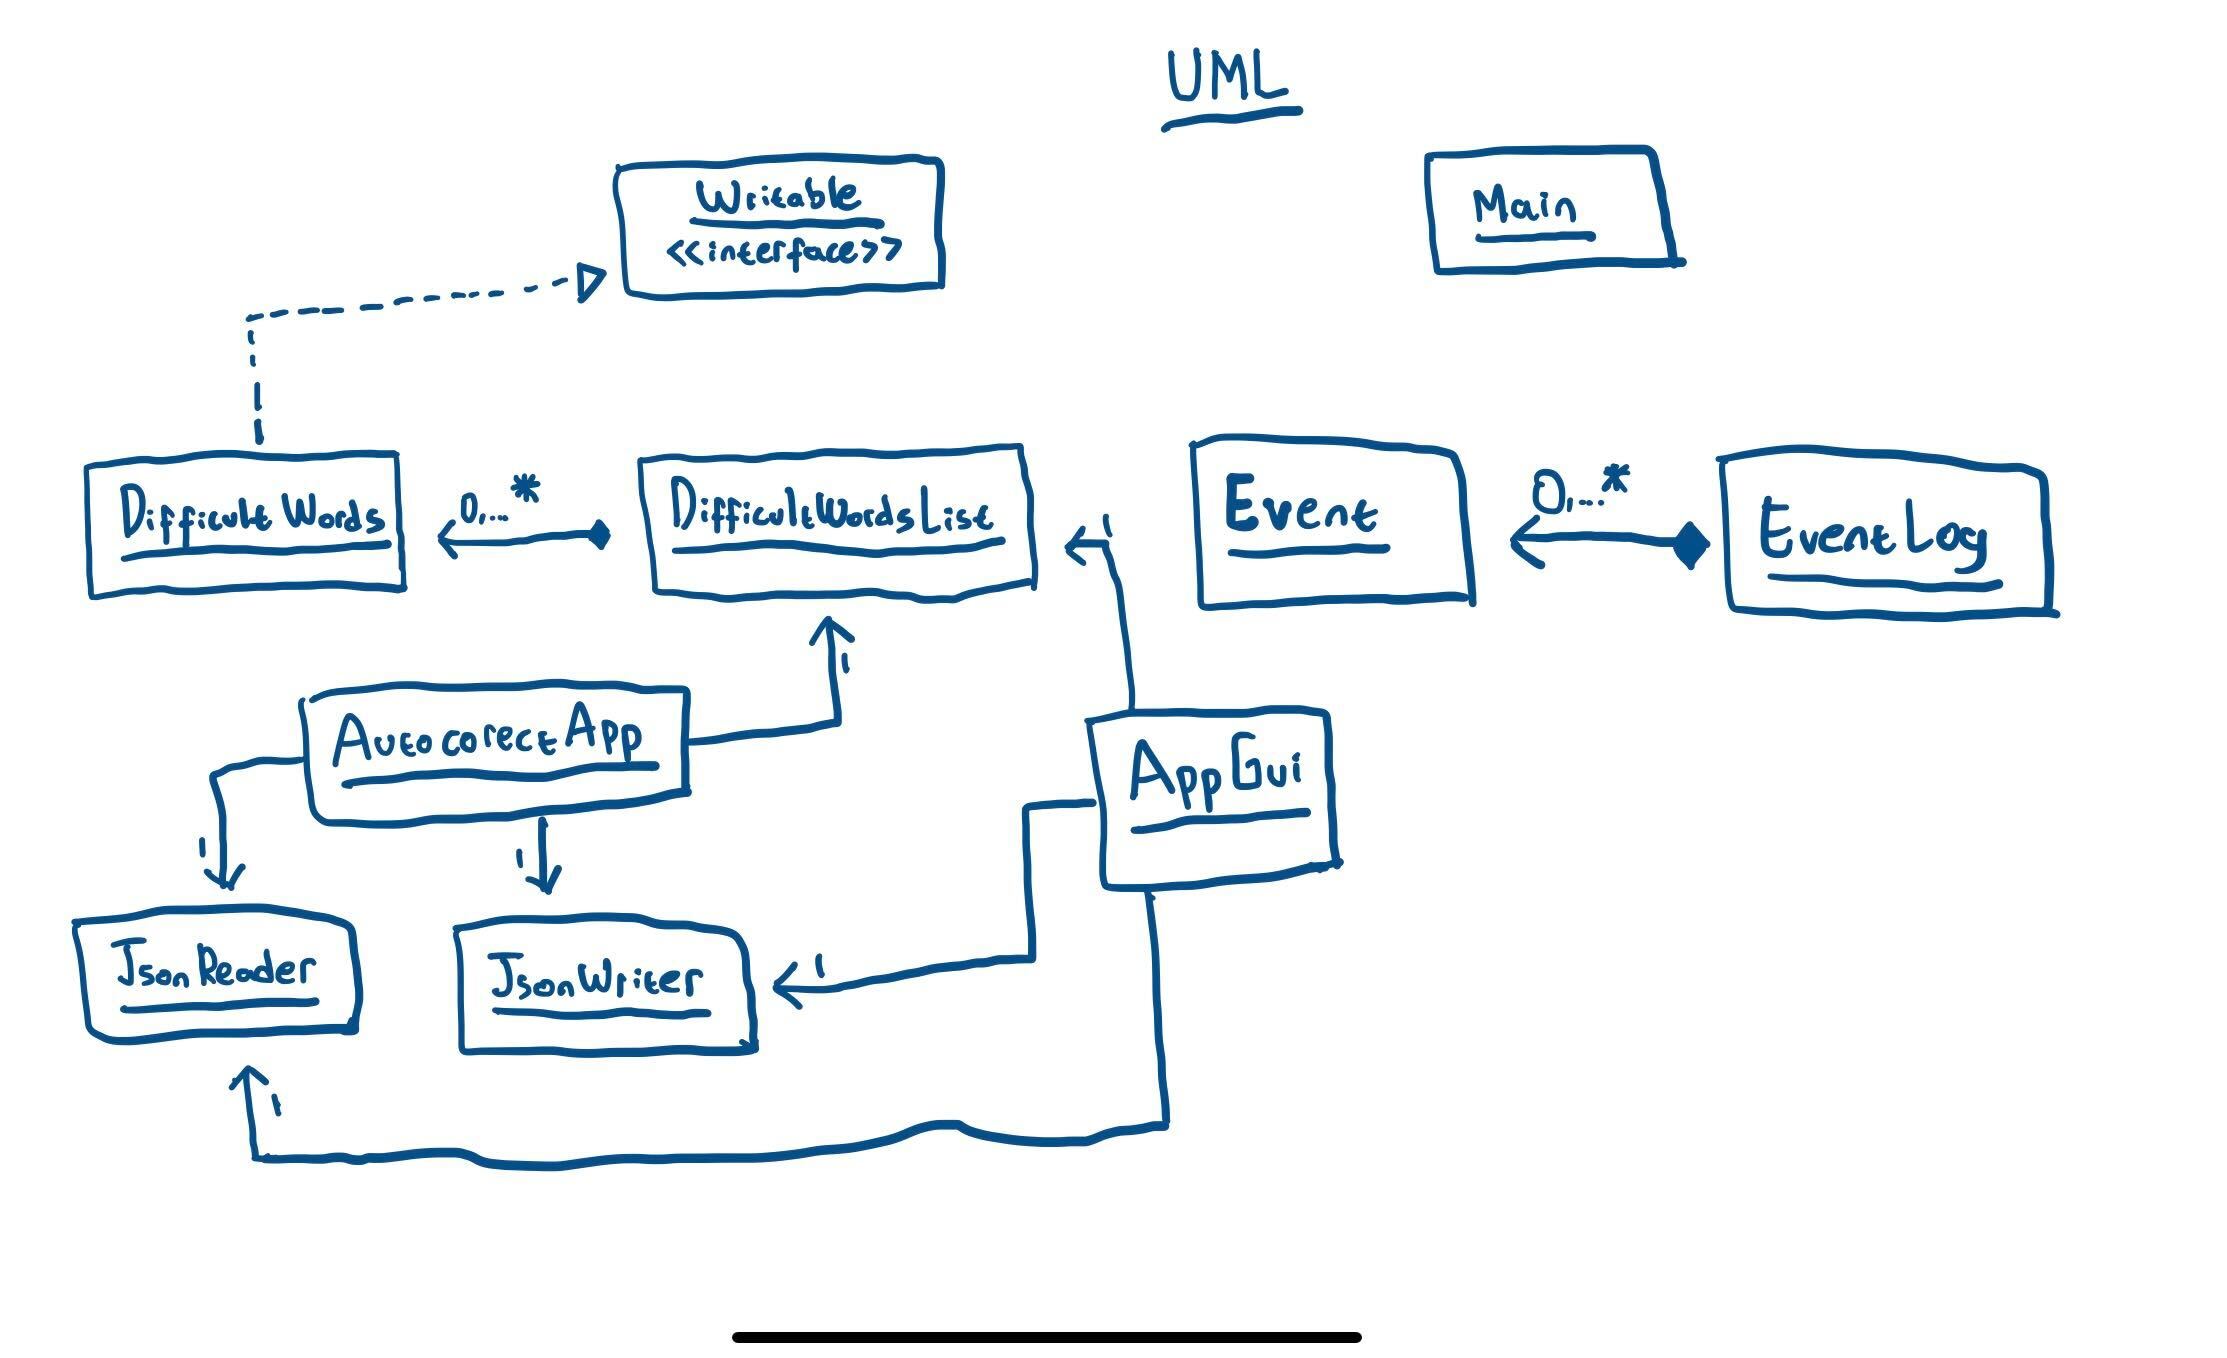 UML
Writable
<<interface>>
Main
DifficultWords
0,...*
DifficultWordsList
1
Event
0,...*
EventLog
1
AutocorectApp
AppGui
1
1
JsonReader
JsonWriter
1
1